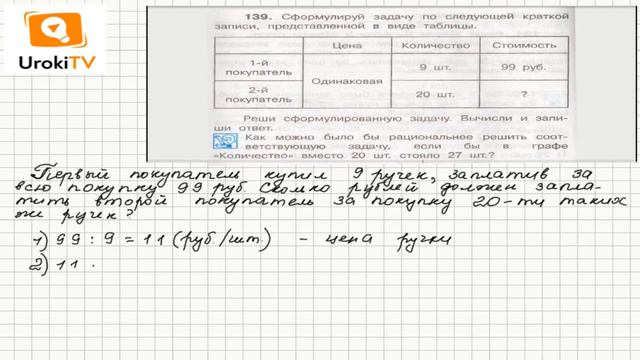 UrokiTV
139. Сформулируй задачу по следующей краткой
записи, представленной в виде таблицы.
Цена Количество Стоимость
1-й покупатель Одинаковая 9 шт. 99 руб.
2-й покупатель 20 шт. ?
Реши сформулированную задачу. Вычисли и запи-
ши ответ.
Как можно было бы рациональнее решить соот-
ветствующую задачу, если бы в графе
«Количество» вместо 20 шт. стояло 27 шт.?
Первый покупатель купил 9 ручек, заплатив за
всю покупку 99 руб. Сколько рублей должен запла-
тить второй покупатель за покупку 20-ти таких
же ручек?
1) 99 : 9 = 11 (руб./шт.) - цена ручки
2) 11 ·